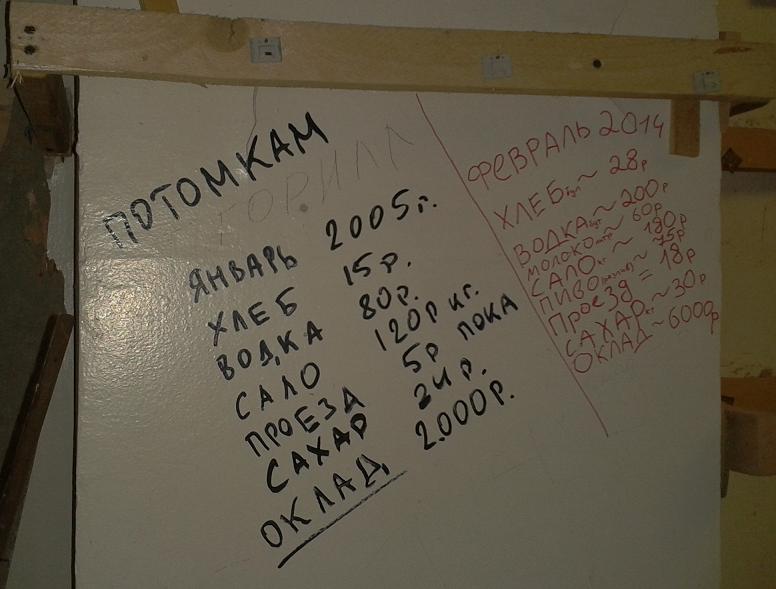 ПОТОМКАМ
ГОРИЛЛ
ЯНВАРЬ 2005 г.
ХЛЕБ 15 р.
ВОДКА 80 р.
САЛО 120 р кг.
ПРОЕЗД 5р ПОКА
САХАР 24 р.
ОКЛАД 2.000 р.
ФЕВРАЛЬ 2014
ХЛЕБ бул ~ 28 р
ВОДКА ~ 200 р
МОЛОКО литр ~ 60 р
САЛО кг ~ 180 р
ПИВО ~ 45 р
Проезд = 18 р
САХАР кг ~ 30 р
ОКЛАД ~ 6000 р